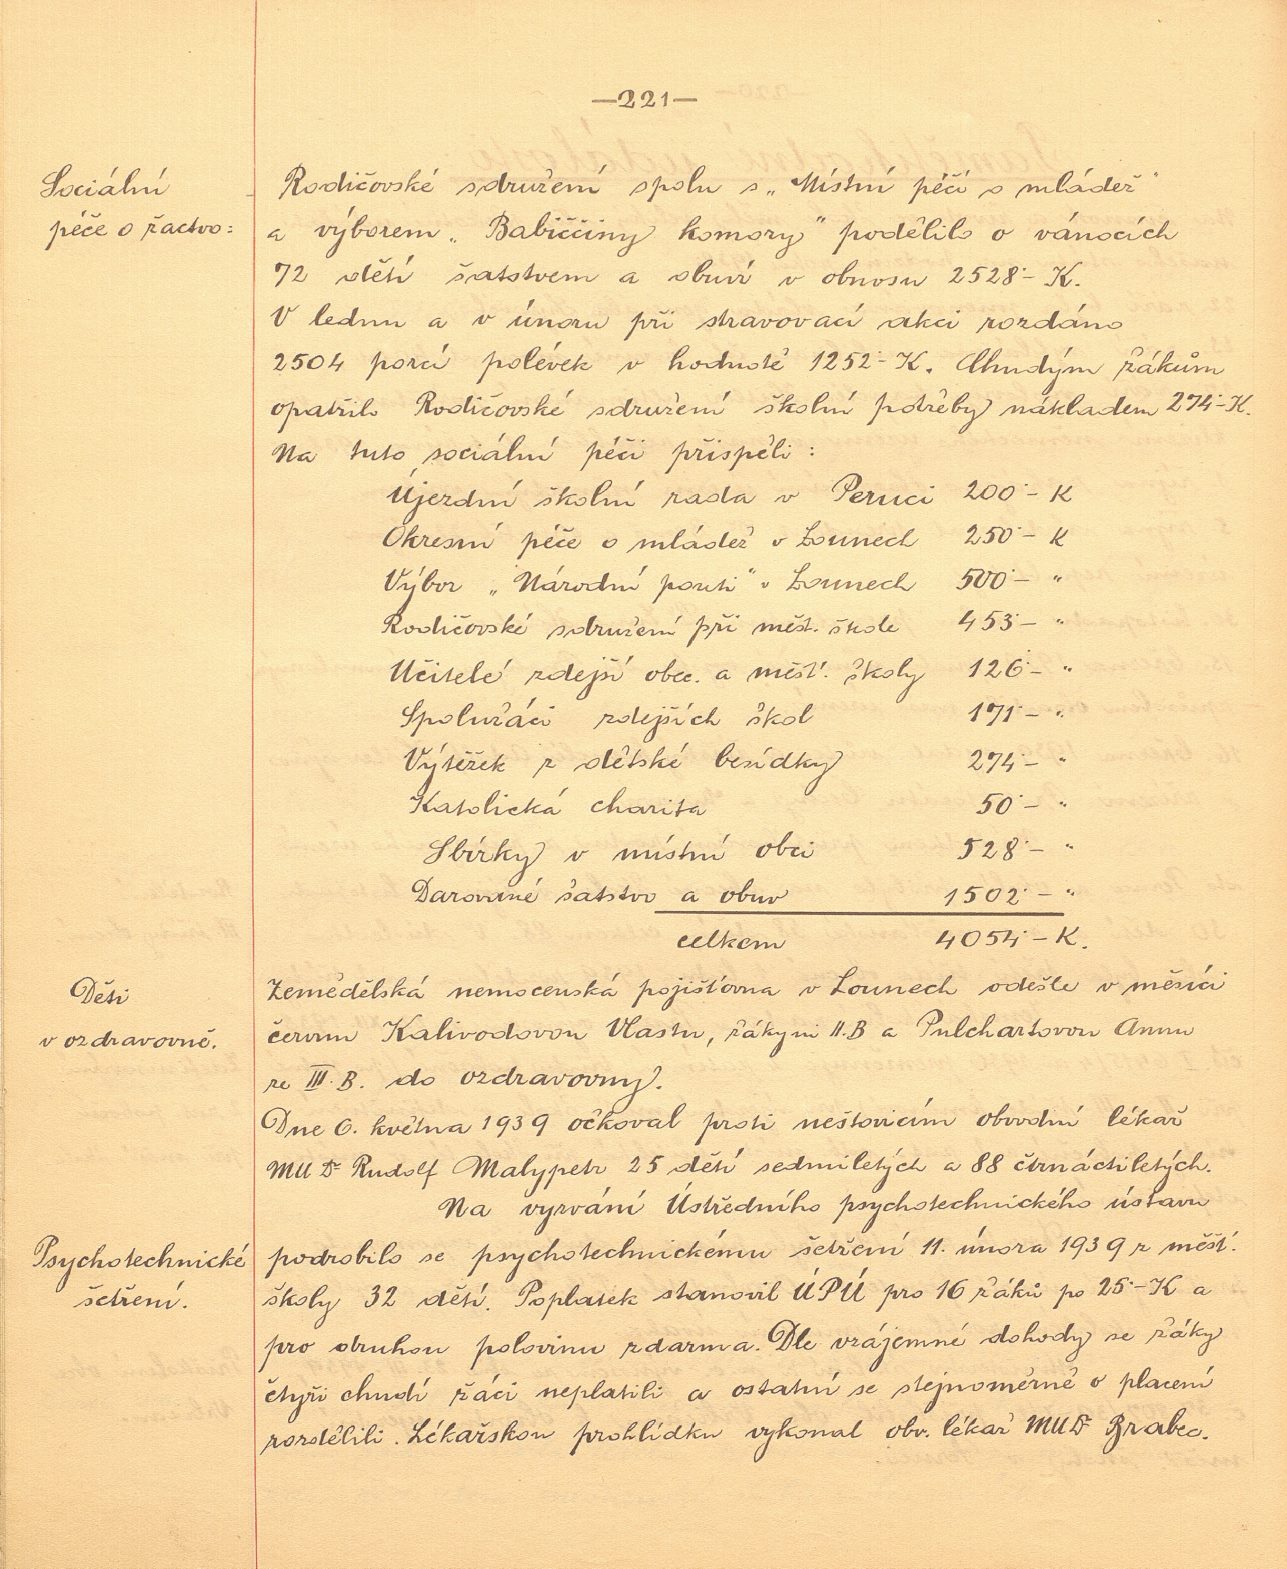 —221—
Sociální
péče o žactvo:
Rodičovské sdružení spolu s „Místní péčí o mládež"
a výborem „Babiččiny komory" podělilo o vánocích
72 dětí šatstvem a obuví v obnosu 2528·- K.
V lednu a v únoru při stravovací akci rozdáno
2504 porcí polévek v hodnotě 1252·- K. Chudým žákům
opatřilo Rodičovské sdružení školní potřeby nákladem 274·-K.
Na tuto sociální péči přispěli:
Újezdní školní rada v Peruci 200·- K
Okresní péče o mládež v Lounech 250·- K
Výbor „Národní pouti" v Lounech 500·- "
Rodičovské sdružení při měšt. škole 453·- "
Učitelé zdejší obec. a měšť. školy 126·- "
Spolužáci zdejších škol 171·- "
Výtěžek z dětské besídky 274·- "
Katolická charita 50·- "
Sbírky v místní obci 528·- "
Darované šatstvo a obuv 1502·- "
celkem 4054·- K.
Děti
v ozdravovně.
Zemědělská nemocenská pojišťovna v Lounech odešle v měsíci
červnu Kalivodovou Vlastu, žákyni II.B a Pulchartovou Annu
ze III.B. do ozdravovny.
Dne 6. května 1939 očkoval proti neštovicím obvodní lékař
MU Dr Rudolf Malypetr 25 dětí sedmiletých a 88 čtrnáctiletých.
Na vyzvání Ústředního psychotechnického ústavu
Psychotechnické
šetření.
podrobilo se psychotechnickému šetření 11. února 1939 z měšť.
školy 32 dětí. Poplatek stanovil ÚPÚ pro 16 žáků po 25·-K a
pro druhou polovinu zdarma. Dle vzájemné dohody se žáky
čtyři chudí žáci neplatili a ostatní se stejnoměrně o placení
rozdělili. Lékařskou prohlídku vykonal obv. lékař MUDr Brabec.